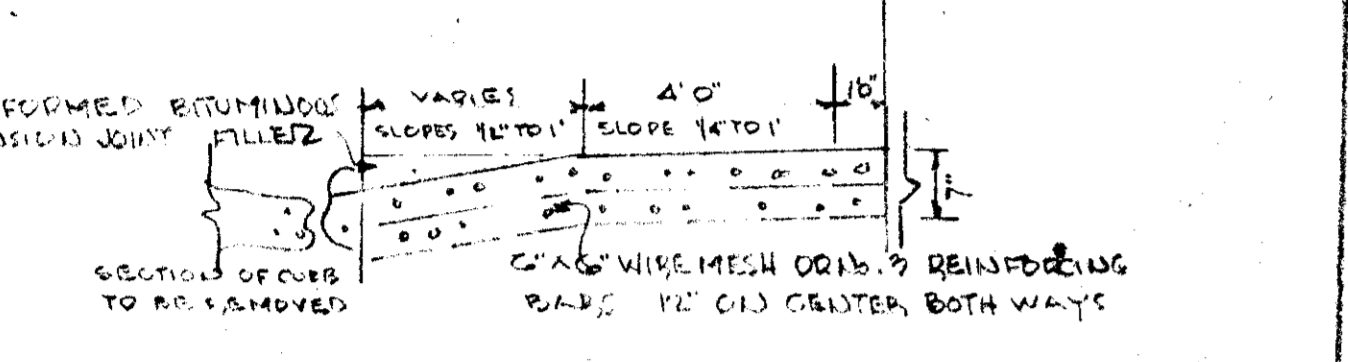 FORMED BITUMINOUS
NSION JOINT FILLER
VARIES
SLOPES 1/2" TO 1'
4' 0"
SLOPE 1/4" TO 1'
7"
SECTION OF CURB
TO BE REMOVED
6" X 6" WIRE MESH OR No. 3 REINFORCING
BARS 12" ON CENTER BOTH WAY'S